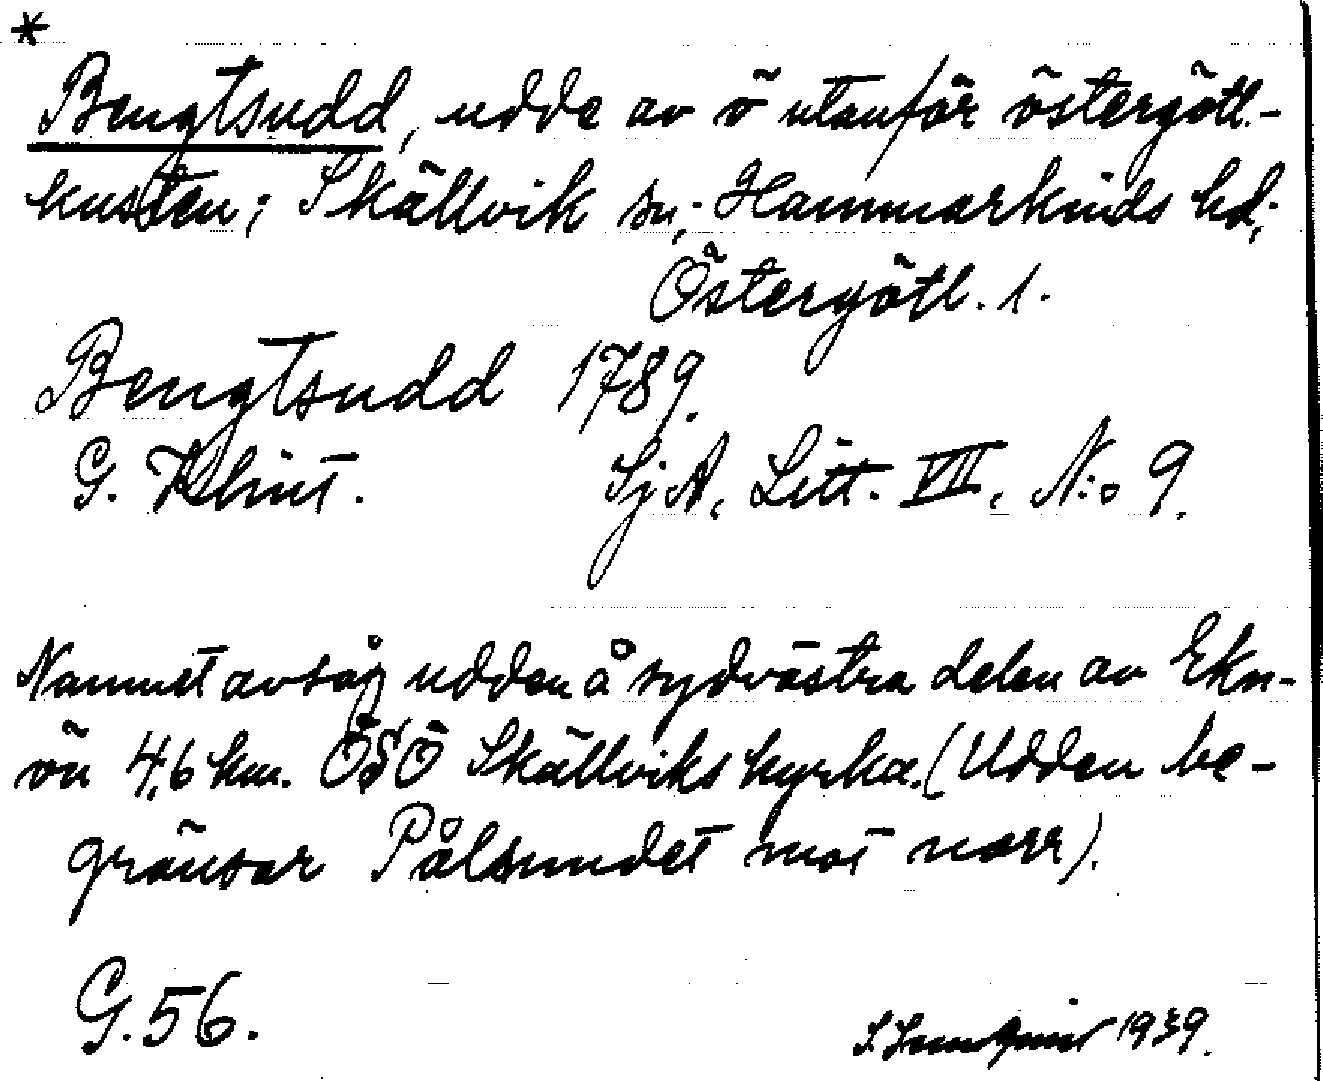 *
Bengtsudd, udde av ö utanför östergötl.-
kusten; Skällvik sn; Hammarkinds hd;
Östergötl. l.
Bengtsudd 1789.
G. Klint. SjA, Litt. VII, N:o 9.
Namnet avsåg udden å sydvästra delen av Ekn-
ön 4,6 km. ÖSÖ Skällviks kyrka. (Udden be-
gränsar Pålsundet mot norr).
G. 56.
1939.